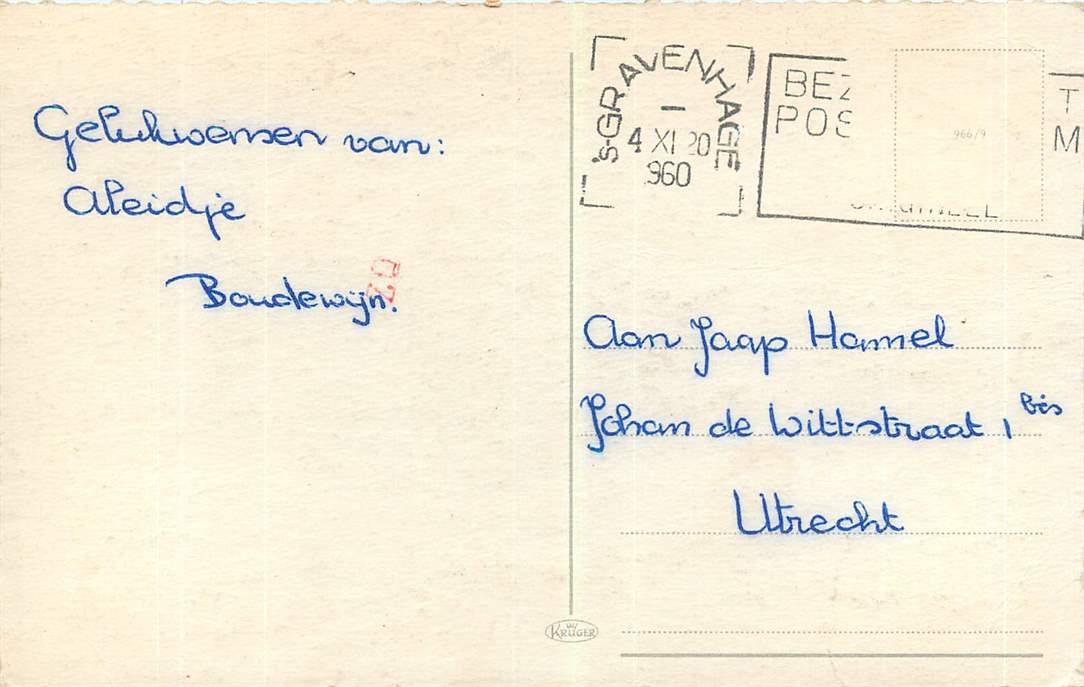 Gelukwensen van:
Aleidje
Boudewijn.
02
's-GRAVENHAGE
4 XI 20
960
BEZ
POS
T
M
966/9
Aan Jaap Hamel
Johan de Wittstraat 1 bis
Utrecht
KRÜGER